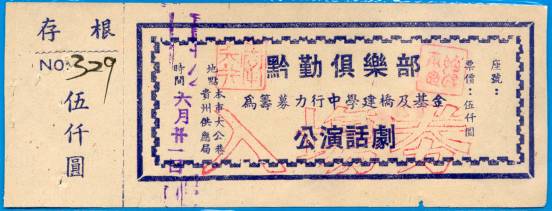 存根
NO: 329
伍仟圓
黔勤俱樂部
為籌募力行中學建橋及基金
公演話劇
入場券
座號：
票價：伍仟圓
地點本市大公巷
貴州供應局
時間六月廿一日